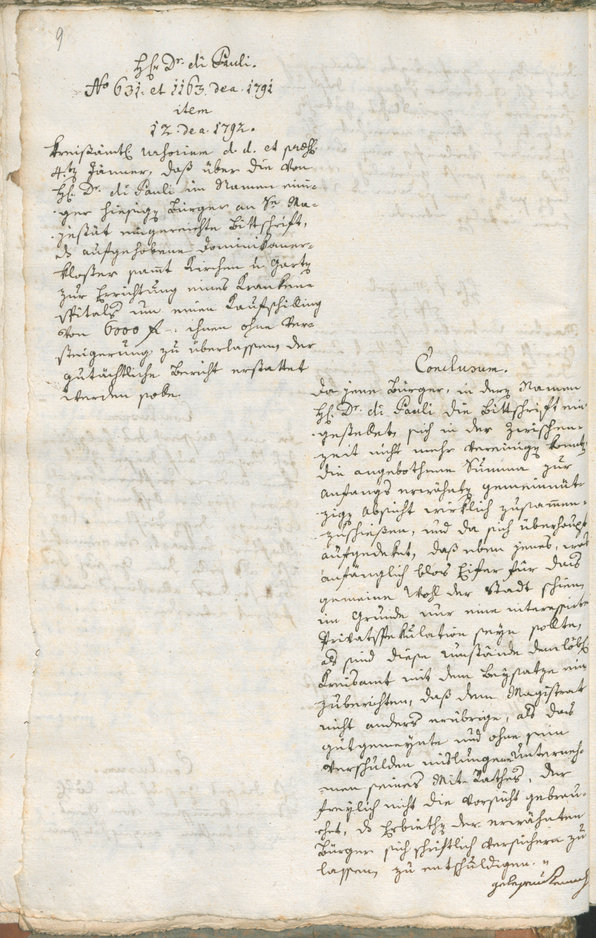 9
H: Dr. di Pauli.
No 631. et 1163. de a. 1791
item
12. de a. 1792.
Kreisämtl. urhorium d. d. et präs.
4.ten Jänner, daß über die von
H: Dr. di Pauli im Namen eini-
ger hiesigen Bürger an Se. Ma-
jestät eingereichte Bittschrift,
das aufgehobene Dominikaner-
kloster sammt Kirchen u Garten
zur Errichtung eines Kranken-
spitals um einen Kaufschilling
von 6000 f. ihnen ohne Ver-
steigerung zu überlassen, der
gutächtliche Bericht erstattet
werden solle.
Conclusum.
Da jene Bürger, in deren Namen
H: Dr. di Pauli die Bittschrift ein-
gestellet, sich in der Zwischen-
zeit nicht mehr vereinigen konnten
die angebothene Summa zur
anfangs erwähnten gemeinnüt-
zigen Absicht wirklich zusammen-
zuschießen, und da sich überhaupt
aufgedeket, daß eben jenes, was
anfänglich blos Eifer für das
gemeine Wohl der Stadt schien,
im Grunde nur eine interessirte
Privatspekulation seyn sollte,
als sind diese Umstände dem löbl.
Kreisamt mit dem Beysatze ein-
zuberichten, daß dem Magistrat
nicht anders erübrige, als das
gutgemeynte und ohne sein
Verschulden mislungene Unterneh-
men seines Mit-Rathes, der
freylich nicht die Vorsicht gebrau-
chet, das Erbiethen der erwähnten
Bürger sich schriftlich versichern zu
lassen, zu entschuldigen.
gelesen